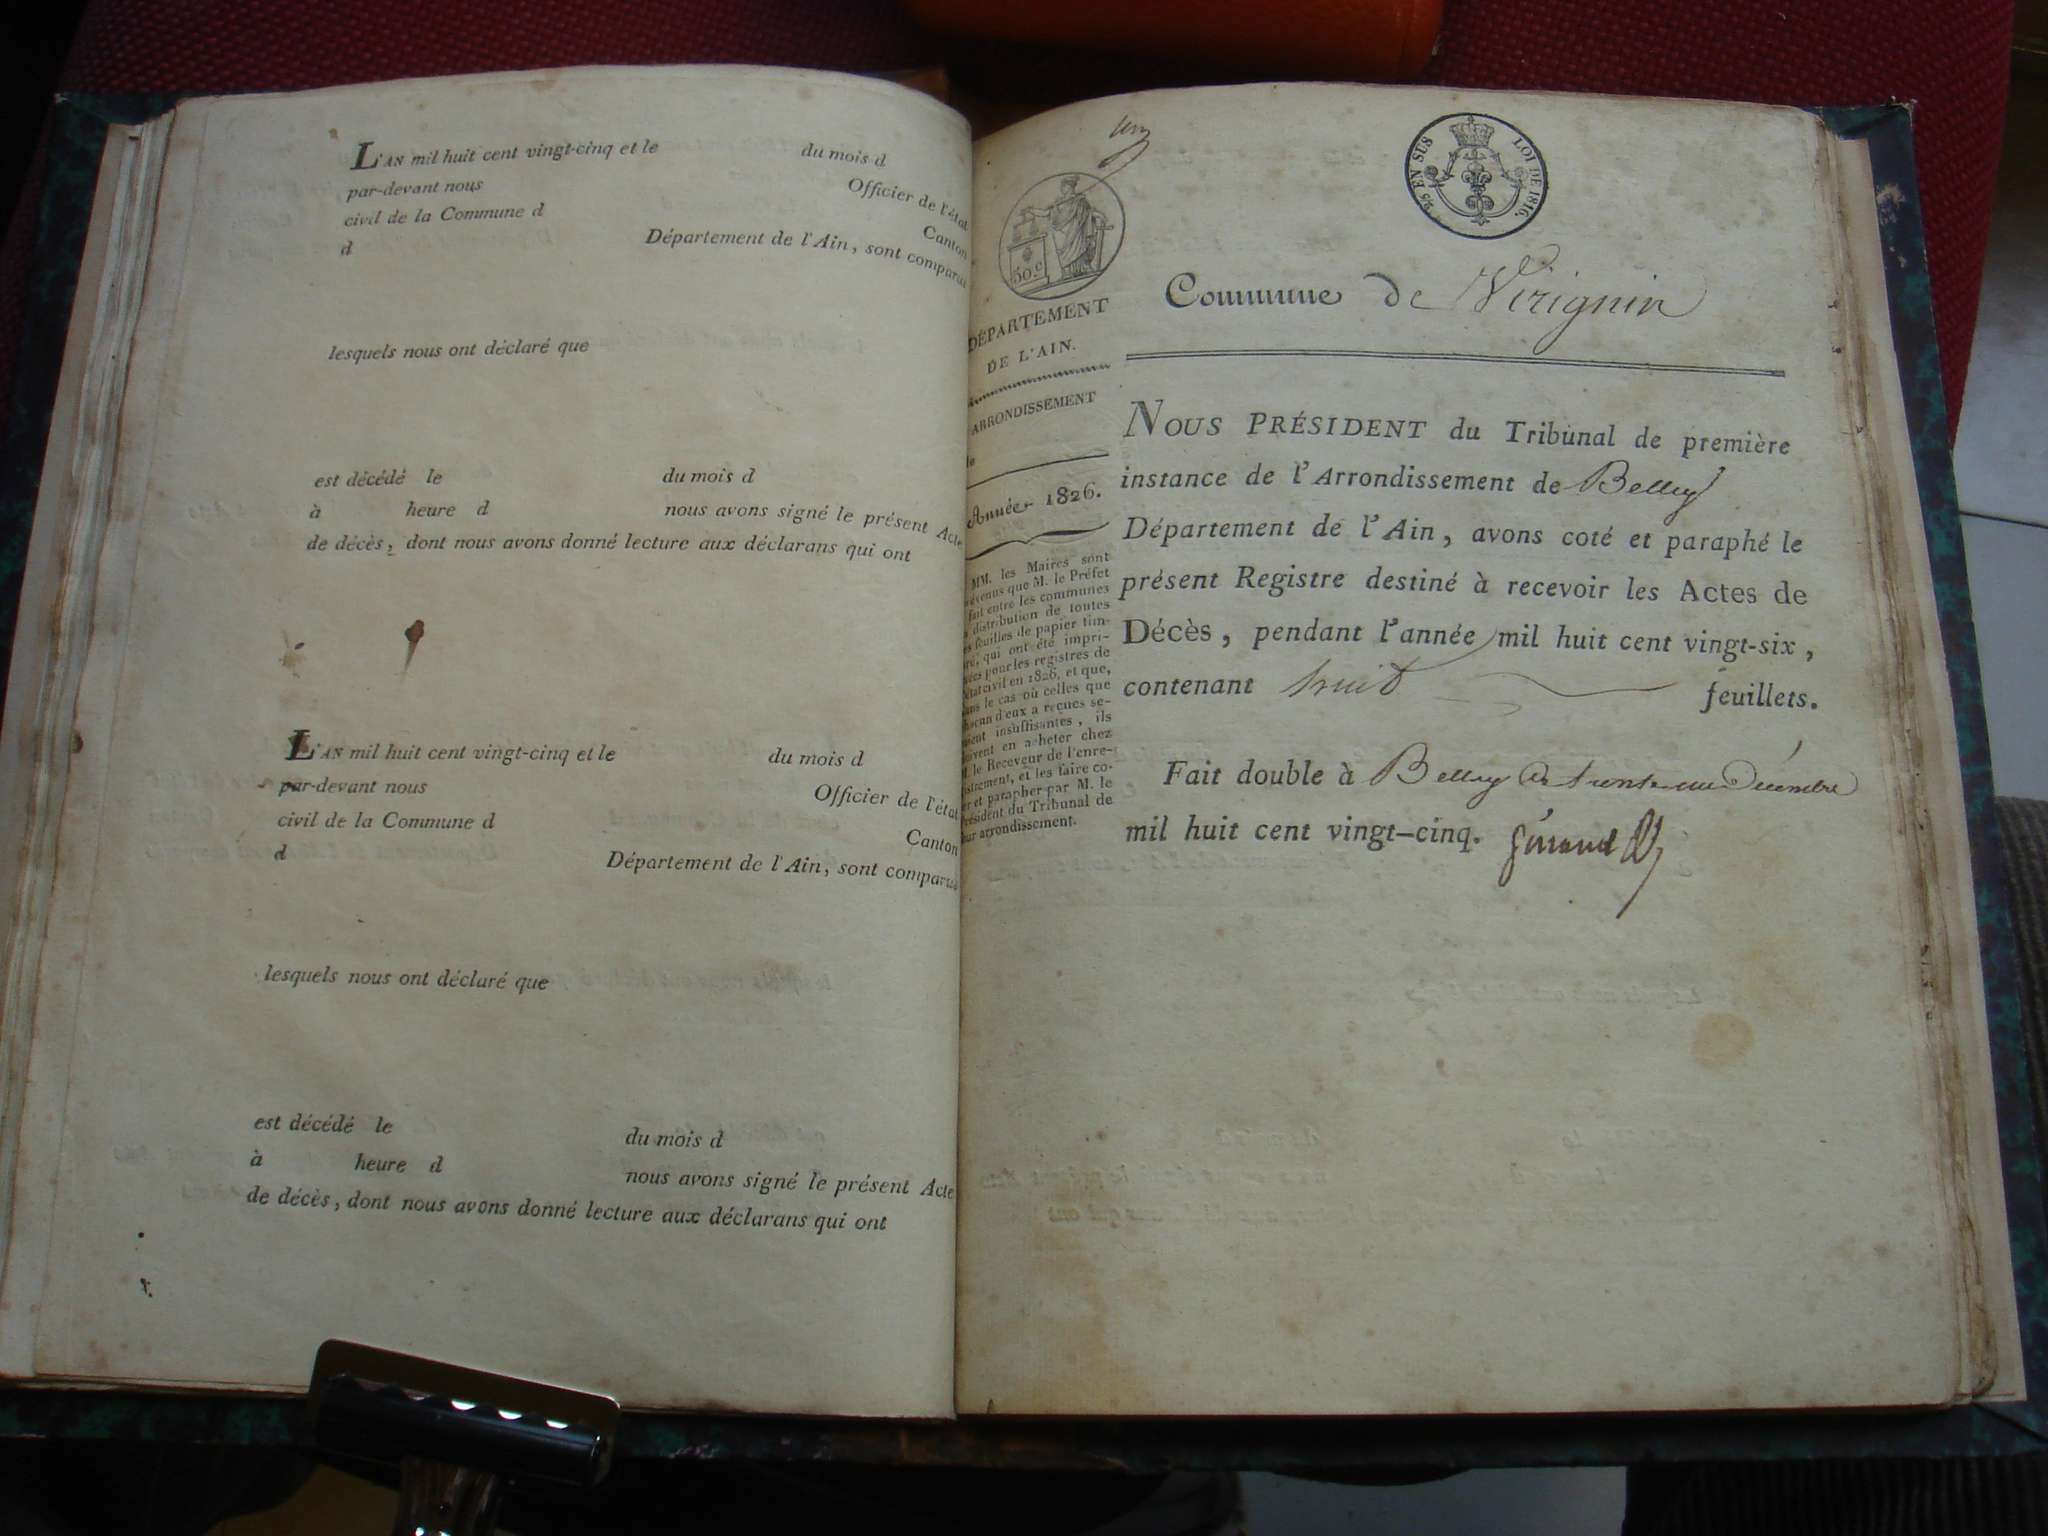 L'AN mil huit cent vingt-cinq et le du mois d
par-devant nous Officier de l'état
civil de la Commune d Canton
d Département de l'Ain, sont comparus
lesquels nous ont déclaré que
est décédé le du mois d
à heure d nous avons signé le présent Acte
de décès, dont nous avons donné lecture aux déclarans qui ont
L'AN mil huit cent vingt-cinq et le du mois d
par-devant nous Officier de l'état
civil de la Commune d Canton
d Département de l'Ain, sont comparus
lesquels nous ont déclaré que
est décédé le du mois d
à heure d nous avons signé le présent Acte
de décès, dont nous avons donné lecture aux déclarans qui ont
50.c
DÉPARTEMENT
DE L'AIN.
ARRONDISSEMENT
de
Année 1826.
MM. les Maires sont
que M. le Préfet
fait entre les communes
distribution de toutes
feuilles de papier tim-
qui ont été impri-
pour les registres de
civil en 1826, et que,
le cas où celles que
d'eux a reçues se-
insuffisantes, ils
en acheter chez
le Receveur de l'enre-
et les faire co-
et parapher par M. le
Président du Tribunal de
arrondissement.
25 EN SUS LOI DE 1816.
Commune de Virignin
NOUS PRÉSIDENT du Tribunal de première
instance de l'Arrondissement de Belley
Département de l'Ain, avons coté et paraphé le
présent Registre destiné à recevoir les Actes de
Décès, pendant l'année mil huit cent vingt-six,
contenant huit feuillets.
Fait double à Belley le trente un Décembre
mil huit cent vingt-cinq.